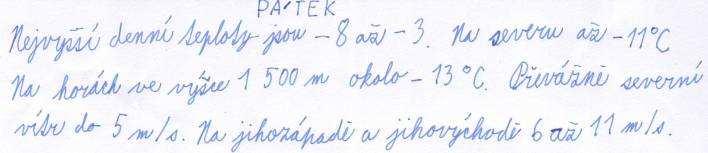 PÁTEK
Nejvyšší denní teploty jsou -8 až -3. Na severu až -11°C
Na horách ve výšce 1 500 m okolo -13 °C. Převážně severní
vítr do 5 m/s. Na jihozápadě a jihovýchodě 6 až 11 m/s.